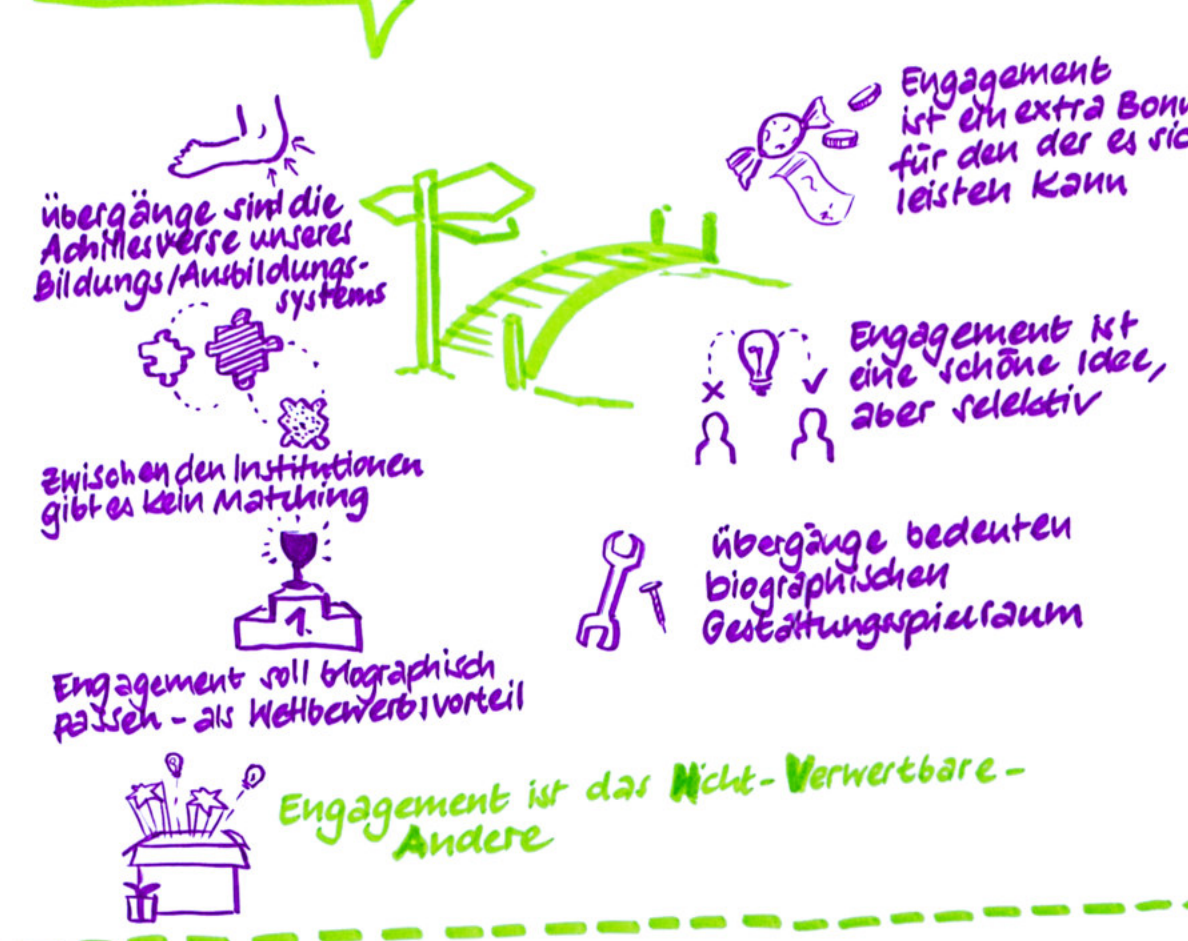 übergänge sind die
Achillesverse unseres
Bildungs/Ausbildungs-
systems
zwischen den Institutionen
gibt es kein Matching
1.
Engagement soll biographisch
passen - als Wettbewerbsvorteil
Engagement
ist ein extra Bonu
für den der es sic
leisten kann
Engagement ist
eine schöne Idee,
aber selektiv
übergänge bedeuten
biographischen
Gestaltungsspielraum
Engagement ist das Nicht-Verwertbare-
Andere